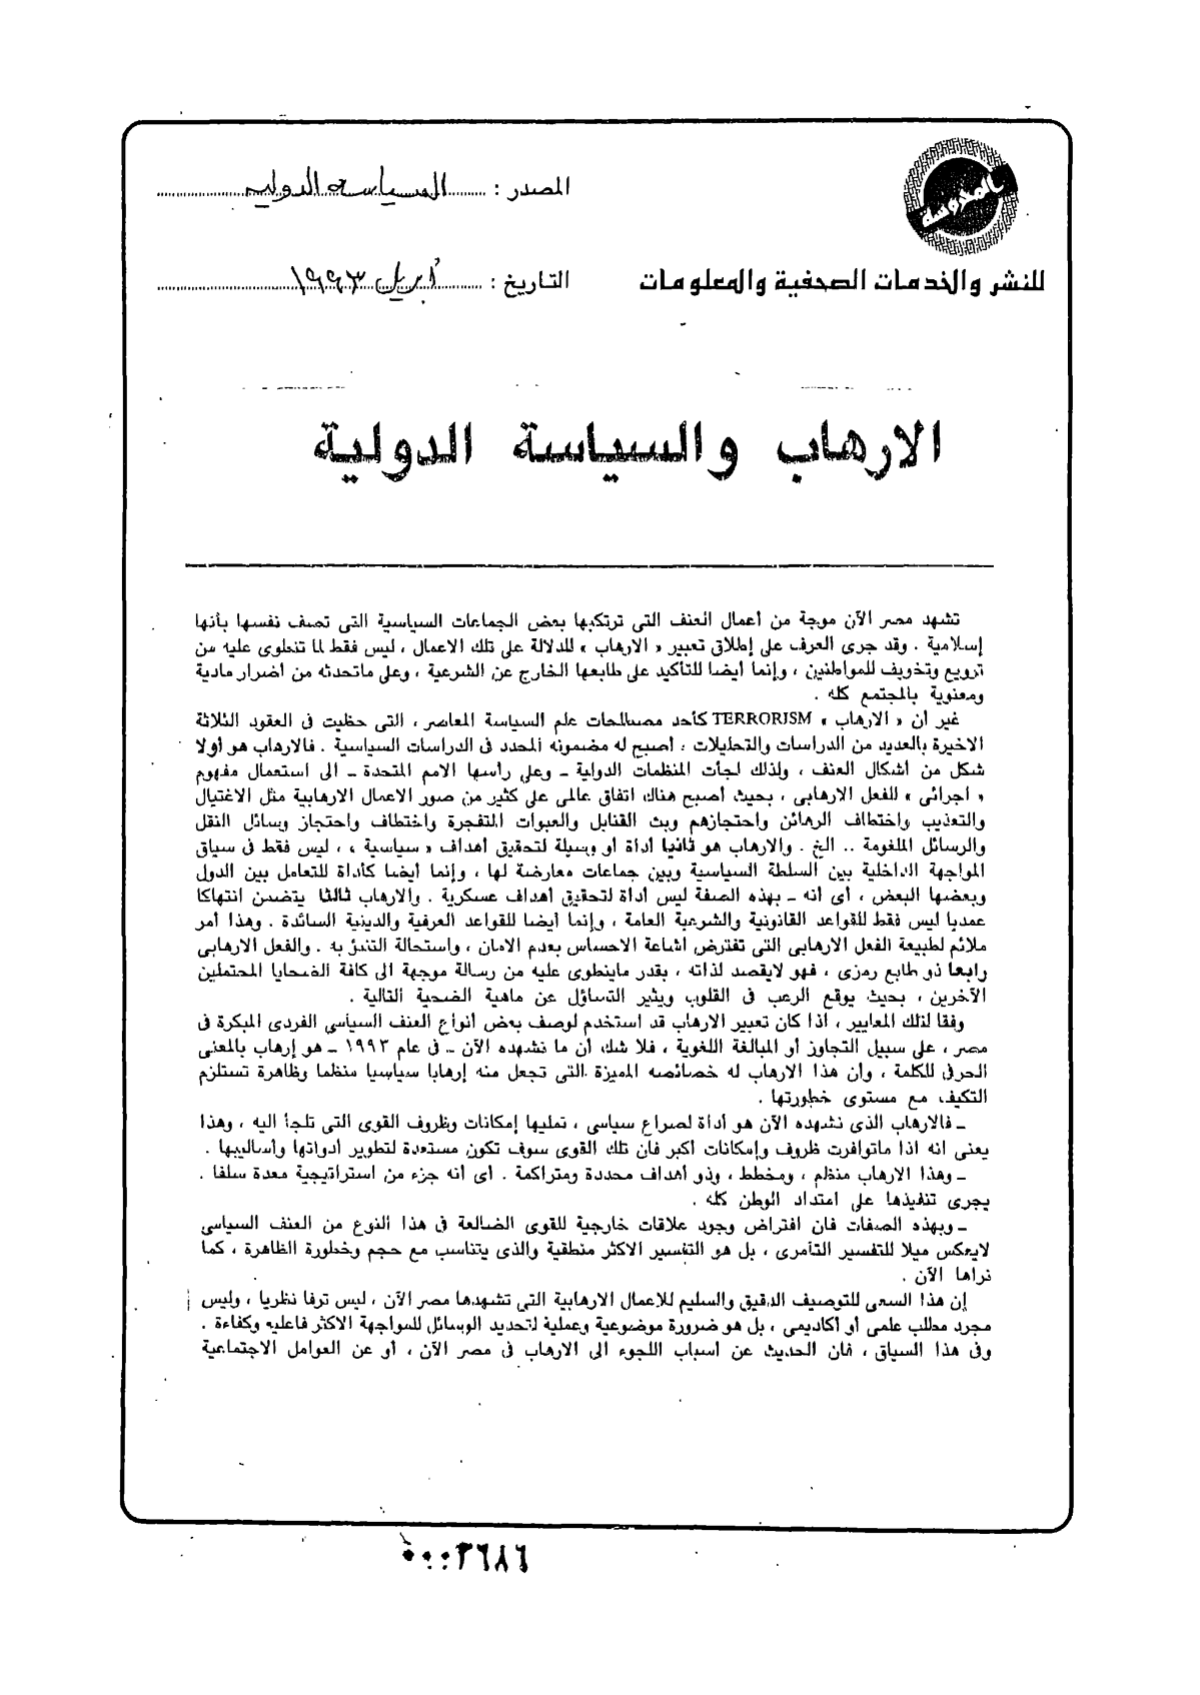 المحروسة
المصدر : السياسة الدولية
للنشر والخدمات الصحفية والمعلومات
التاريخ : أبريل ١٩٩٣
الارهاب والسياسة الدولية
تشهد مصر الآن موجة من أعمال العنف التى ترتكبها بعض الجماعات السياسية التى تصف نفسها بأنها
إسلامية . وقد جرى العرف على إطلاق تعبير « الارهاب » للدلالة على تلك الاعمال ، ليس فقط لما تنطوى عليه من
ترويع وتخويف للمواطنين ، وإنما أيضا للتأكيد على طابعها الخارج عن الشرعية ، وعلى ماتحدثه من أضرار مادية
ومعنوية بالمجتمع كله .
غير أن « الارهاب » TERRORISM كأحد مصطلحات علم السياسة المعاصر ، التى حظيت فى العقود الثلاثة
الاخيرة بالعديد من الدراسات والتحليلات ، أصبح له مضمونه المحدد فى الدراسات السياسية . فالارهاب هو أولا
شكل من أشكال العنف ، ولذلك لجأت المنظمات الدولية ـ وعلى رأسها الامم المتحدة ـ الى استعمال مفهوم
« اجرائى » للفعل الارهابى ، بحيث أصبح هناك اتفاق عالمى على كثير من صور الاعمال الارهابية مثل الاغتيال
والتعذيب واختطاف الرهائن واحتجازهم وبث القنابل والعبوات المتفجرة واختطاف واحتجاز وسائل النقل
والرسائل الملغومة .. الخ . والارهاب هو ثانيا أداة أو وسيلة لتحقيق أهداف « سياسية » ، ليس فقط فى سياق
المواجهة الداخلية بين السلطة السياسية وبين جماعات معارضة لها ، وإنما أيضا كأداة للتعامل بين الدول
وبعضها البعض ، أى أنه ـ بهذه الصفة ليس أداة لتحقيق أهداف عسكرية . والارهاب ثالثا يتضمن انتهاكا
عمديا ليس فقط للقواعد القانونية والشرعية العامة ، وإنما أيضا للقواعد العرفية والدينية السائدة . وهذا أمر
ملائم لطبيعة الفعل الارهابى التى تفترض اشاعة الاحساس بعدم الامان ، واستحالة التنبؤ به . والفعل الارهابى
رابعا ذو طابع رمزى ، فهو لايقصد لذاته ، بقدر ماينطوى عليه من رسالة موجهة الى كافة الضحايا المحتملين
الآخرين ، بحيث يوقع الرعب فى القلوب ويثير التساؤل عن ماهية الضحية التالية .
وفقا لذلك المعايير ، اذا كان تعبير الارهاب قد استخدم لوصف بعض أنواع العنف السياسى الفردى المبكرة فى
مصر ، على سبيل التجاوز أو المبالغة اللغوية ، فلا شك أن ما نشهده الآن ـ فى عام ١٩٩٣ ـ هو إرهاب بالمعنى
الحرفى للكلمة ، وأن هذا الارهاب له خصائصه المميزة التى تجعل منه إرهابا سياسيا منظما وظاهرة تستلزم
التكيف مع مستوى خطورتها .
ـ فالارهاب الذى نشهده الآن هو أداة لصراع سياسى ، تمليها إمكانات وظروف القوى التى تلجأ اليه ، وهذا
يعنى انه اذا ماتوافرت ظروف وإمكانات اكبر فان تلك القوى سوف تكون مستعدة لتطوير أدواتها وأساليبها .
ـ وهذا الارهاب منظم ، ومخطط ، وذو أهداف محددة ومتراكمة . أى انه جزء من استراتيجية معدة سلفا .
يجرى تنفيذها على امتداد الوطن كله .
ـ وبهذه الصفات فان افتراض وجود علاقات خارجية للقوى الضالعة فى هذا النوع من العنف السياسى
لايعكس ميلا للتفسير التآمرى ، بل هو التفسير الاكثر منطقية والذى يتناسب مع حجم وخطورة الظاهرة ، كما
نراها الآن .
إن هذا السعى للتوصيف الدقيق والسليم للاعمال الارهابية التى تشهدها مصر الآن ، ليس ترفا نظريا ، وليس
مجرد مطلب علمى أو أكاديمى ، بل هو ضرورة موضوعية وعملية لتحديد الوسائل للمواجهة الاكثر فاعليه وكفاءة .
وفى هذا السياق ، فان الحديث عن اسباب اللجوء الى الارهاب فى مصر الآن ، أو عن العوامل الاجتماعية
٠٠٠٣٦٨٦